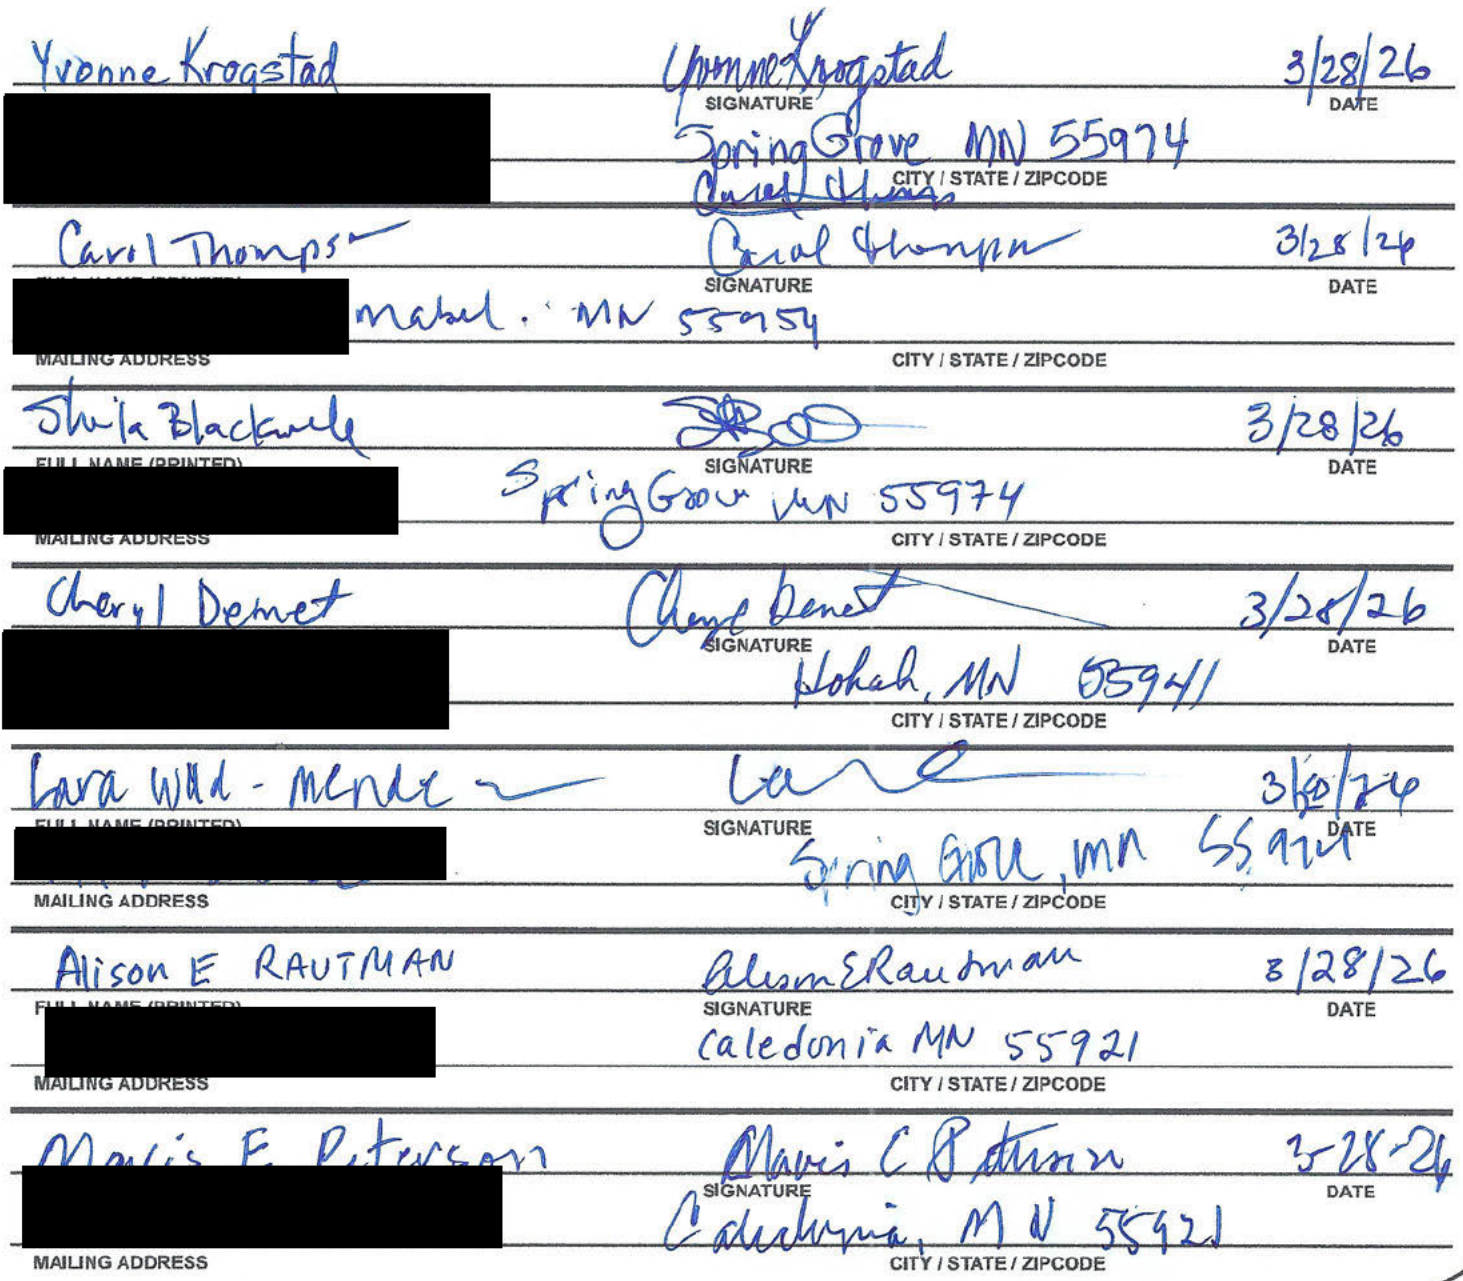 Yvonne Krogstad Yvonne Krogstad 3/28/26
SIGNATURE DATE
Spring Grove MN 55974
CITY / STATE / ZIPCODE
Carol Thompson Carol Thompson 3/28/26
SIGNATURE DATE
Mabel. MN 55954
MAILING ADDRESS CITY / STATE / ZIPCODE
Sheila Blackwell 3/28/26
FULL NAME (PRINTED) SIGNATURE DATE
Spring Grove MN 55974
MAILING ADDRESS CITY / STATE / ZIPCODE
Cheryl Demet Cheryl Demet 3/28/26
SIGNATURE DATE
Hokah, MN 55941
CITY / STATE / ZIPCODE
Lara Wild - Mende
FULL NAME (PRINTED) SIGNATURE DATE
Spring Grove, MN 55974
MAILING ADDRESS CITY / STATE / ZIPCODE
Alison E RAUTMAN Alison E Rautman 3/28/26
FULL NAME (PRINTED) SIGNATURE DATE
Caledonia MN 55921
MAILING ADDRESS CITY / STATE / ZIPCODE
Mavis E Peterson Mavis C Peterson 3-28-26
SIGNATURE DATE
Caledonia, MN 55921
MAILING ADDRESS CITY / STATE / ZIPCODE